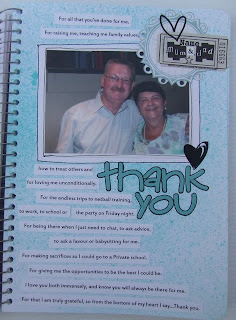 For all that you've done for me,
For raising me, teaching me family values,
Mum & dad
how to treat others and
for loving me unconditionally.
For the endless trips to netball training,
to work, to school or the party on Friday night.
For being there when I just need to chat, to ask advice,
to ask a favour or babysitting for me.
For making sacrifices so I could go to a Private school.
For giving me the opportunities to be the best I could be.
I love you both immensely, and know you will always be there for me.
For that I am truly grateful, so from the bottom of my heart I say...Thank you.
thank
you